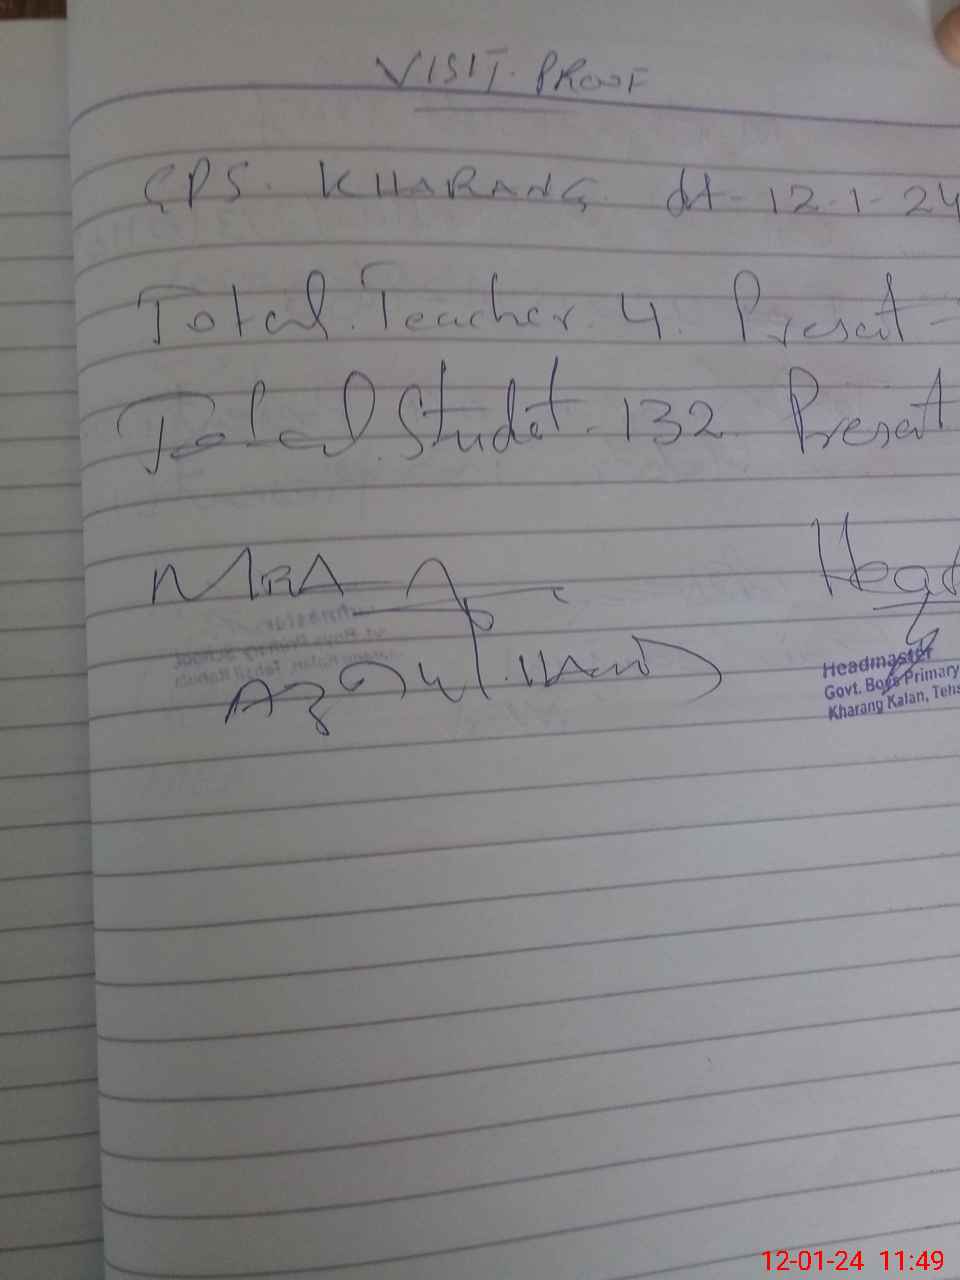 VISIT. PROOF
GPS. KHARANG. dt - 12-1-24
Total. Teacher. 4. Present -
Total. Studet. 132. Present
MRA
Head
Headmaster
Govt. Boys Primary
Kharang Kalan, Tehs
12-01-24 11:49